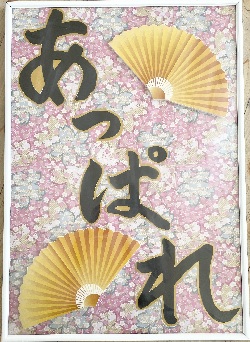 あっぱれ